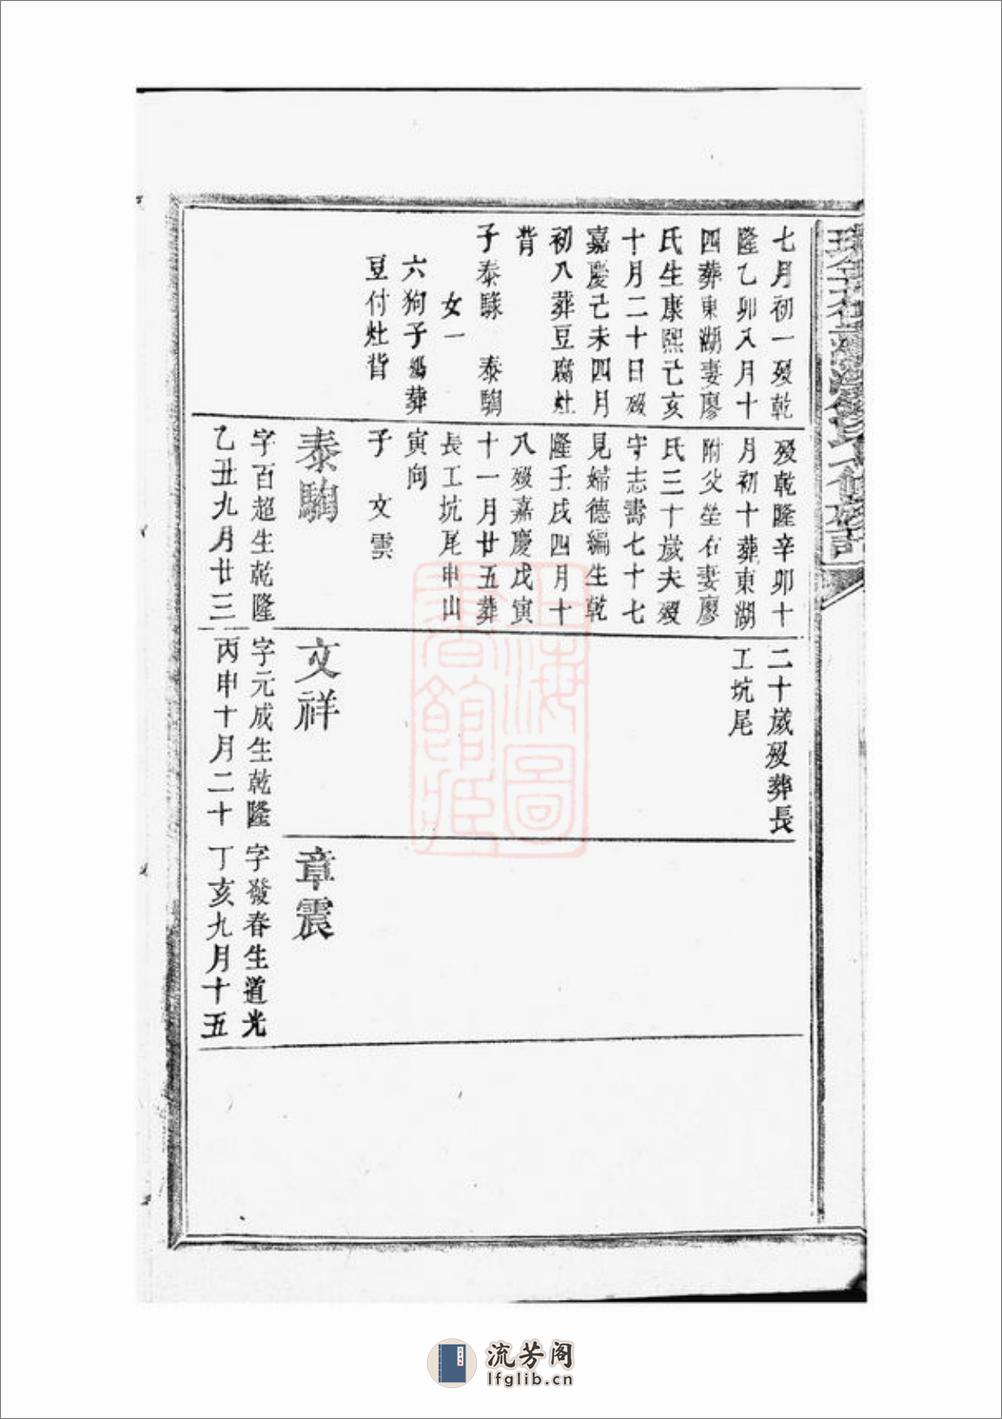 七月初一歿乾
隆乙卯八月十
四葬東湖妻廖
氏生康熙己亥
十月二十日歿
嘉慶己未四月
初八葬豆腐灶
背
子泰騄 泰駒
女一
六狗子 葬
豆付灶背
歿乾隆辛卯十
月初十葬東湖
附父塋右妻廖
氏三十歲夫歿
守志壽七十七
見婦德編生乾
隆壬戌四月十
八歿嘉慶戊寅
十一月廿五葬
長工坑尾申山
寅向
子 文雲
泰駒
字百超生乾隆
乙丑九月廿三
二十歲歿葬長
工坑尾
文祥
字元成生乾隆
丙申十月二十
章震
字發春生道光
丁亥九月十五
上海圖
書館藏
流芳阁
lfglib.cn